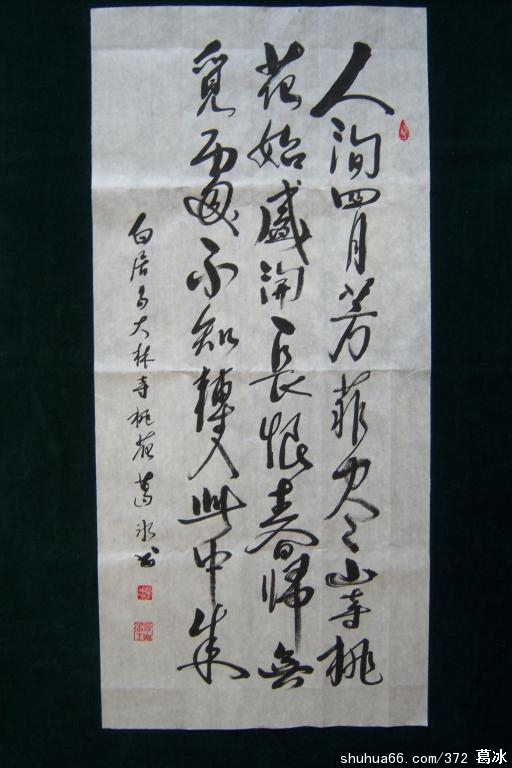 人间四月芳菲尽山寺桃
花始盛開長恨春歸無
覓處不知轉入此中來
白居易大林寺桃花 葛冰书
shuhua66.com/372 葛冰